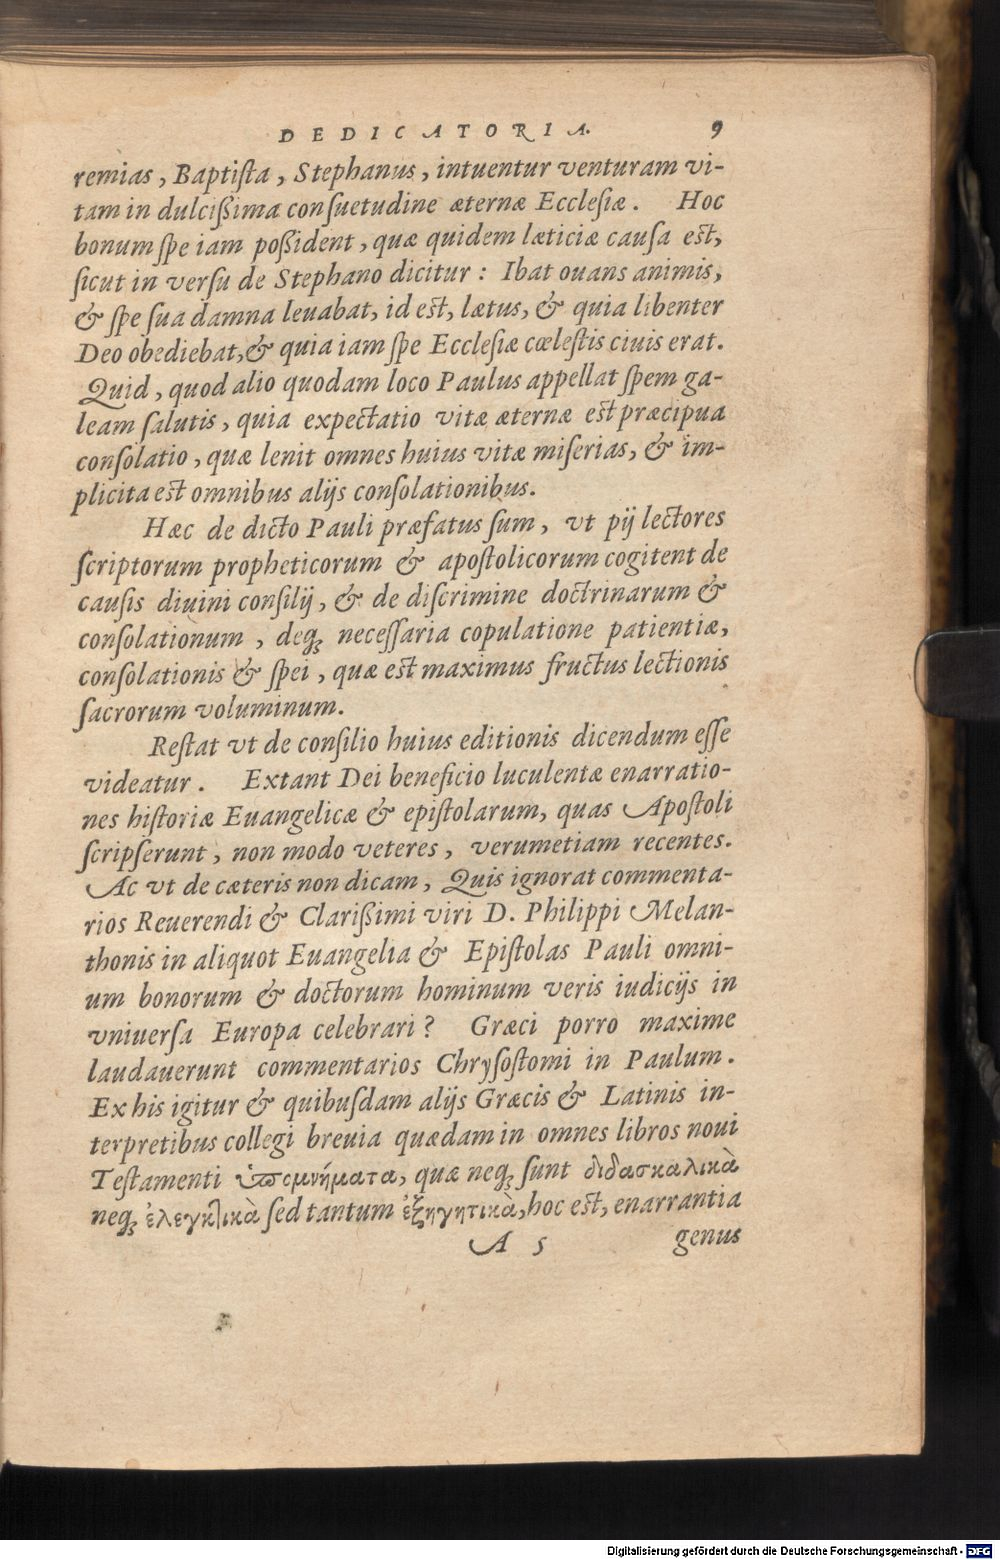 DEDICATORIA. 9
remias, Baptiſta, Stephanus, intuentur venturam vi-
tam in dulcißima conſuetudine æternæ Eccleſiæ. Hoc
bonum ſpe iam poßident, quæ quidem læticiæ cauſa eſt,
ſicut in verſu de Stephano dicitur: Ibat ouans animis,
& ſpe ſua damna leuabat, id eſt, lætus, & quia libenter
Deo obediebat, & quia iam ſpe Eccleſiæ cœleſtis ciuis erat.
Quid, quod alio quodam loco Paulus appellat ſpem ga-
leam ſalutis, quia expectatio vitæ æternæ eſt præcipua
conſolatio, quæ lenit omnes huius vitæ miſerias, & im-
plicita eſt omnibus alijs conſolationibus.
Hæc de dicto Pauli præfatus ſum, vt pij lectores
ſcriptorum propheticorum & apoſtolicorum cogitent de
cauſis diuini conſilij, & de diſcrimine doctrinarum &
conſolationum, deq́ꝫ neceſſaria copulatione patientiæ,
conſolationis & ſpei, quæ eſt maximus fructus lectionis
ſacrorum voluminum.
Reſtat vt de conſilio huius editionis dicendum eſſe
videatur. Extant Dei beneficio luculentæ enarratio-
nes hiſtoriæ Euangelicæ & epiſtolarum, quas Apoſtoli
ſcripſerunt, non modo veteres, verumetiam recentes.
Ac vt de cæteris non dicam, Quis ignorat commenta-
rios Reuerendi & Clarißimi viri D. Philippi Melan-
thonis in aliquot Euangelia & Epiſtolas Pauli omni-
um bonorum & doctorum hominum veris iudicijs in
vniuerſa Europa celebrari? Græci porro maxime
laudauerunt commentarios Chryſoſtomi in Paulum.
Ex his igitur & quibuſdam alijs Græcis & Latinis in-
terpretibus collegi breuia quædam in omnes libros noui
Teſtamenti ὑπομνήματα, quæ neqꝫ ſunt διδασκαλικὰ
neqꝫ ἐλεγκλικὰ ſed tantum ἐξηγητικὰ, hoc eſt, enarrantia
A 5 genus
Digitalisierung gefördert durch die Deutsche Forschungsgemeinschaft - DFG